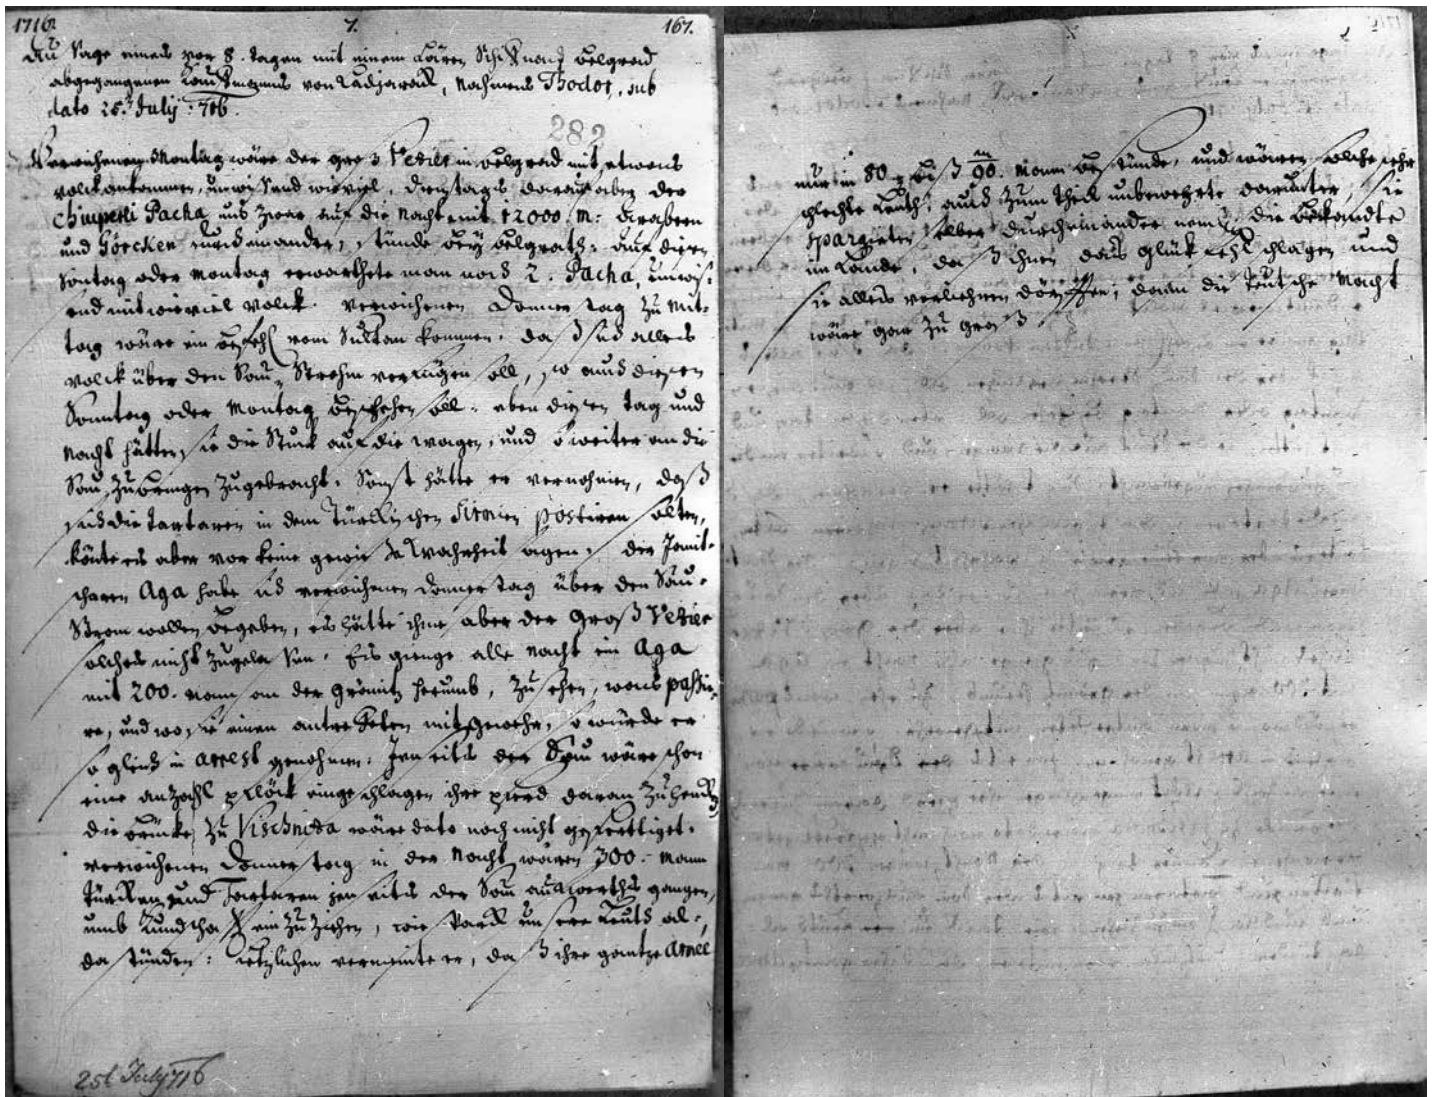 1716. 7. 167.
Auß Sage eines vor 8. tagen mit einem Lären Schiff nach Belgrad
abgegangenen Kauffmanns von Radjevatz, Nahmens Thodor, sub
dato 25.t July 716.
282
Verwichenen Montag wäre der groß Vezier in Belgrad mit etwas
volck ankommen, unwissend wie viel, Dienstags darauf aber der
Pacha und zwar auf die Nacht mit 12000. m:
und Görcken durcheinander, stünde bey Belgrath: auf diesen
Sontag oder Montag erwarthete man noch 2. Pacha, unwis-
send mit wie viel Volck. Verwichenen Donnerstag zu Mit-
tag wäre ein Befehl vom Sultan kommen, daß sich alles
Volck über den Sau-Strohm verfügen soll, so auch diesen
Sonntag oder Montag beschehen soll: eben diesen tag und
Nacht hätten sie die Stuck auf die wägen, und so weiter an die
Sau zu bringen zugebracht. Sonst hätte er vernohmen, daß
sich die Tartaren in dem Türkischen Sirmien postiren solten,
könte es aber vor keine gewisse Wahrheit sagen: der Janit-
scharen Aga habe sich verwichenen Donnerstag über den Sau-
Strom wollen begeben, es hätte ihme aber der Groß Vezier
solches nicht zugelassen. Es gienge alle Nacht ein Aga
mit 200. Mann an der Gränitz herumb, zu sehen, was passi-
re, und wo sie einen antreffeten mit gewehr, so würde er
so gleich in Arrest genohmen: Jenseits der Sau wäre schon
eine anzahl pflöck eingeschlagen ihre pferd daran zu hencken
die brücke zu Vischniza wäre dato noch nicht gefertiget.
Verwichenen Donnerstag in der Nacht wären 300. Mann
Türcken und Tartaren jenseits der Sau aufwerths gangen,
umb Kundschafft einzuziehen, wie starck unsere Leuth al-
da stünden: Letzlichen vermeinte er, daß ihre gantze Armee
25t July 716
nur in 80. biß 90. m Mann bestünde, und wären solche sehr
schlechte Leuth, auch zum theil unbewehrte darunter, sie
spargirten selber durcheinander, die Bekandte
im Lande, daß ihnen das Glück fehl schlagen und
sie alles verliehren dörfften; dann die Teutsche Macht
wäre gar zu groß